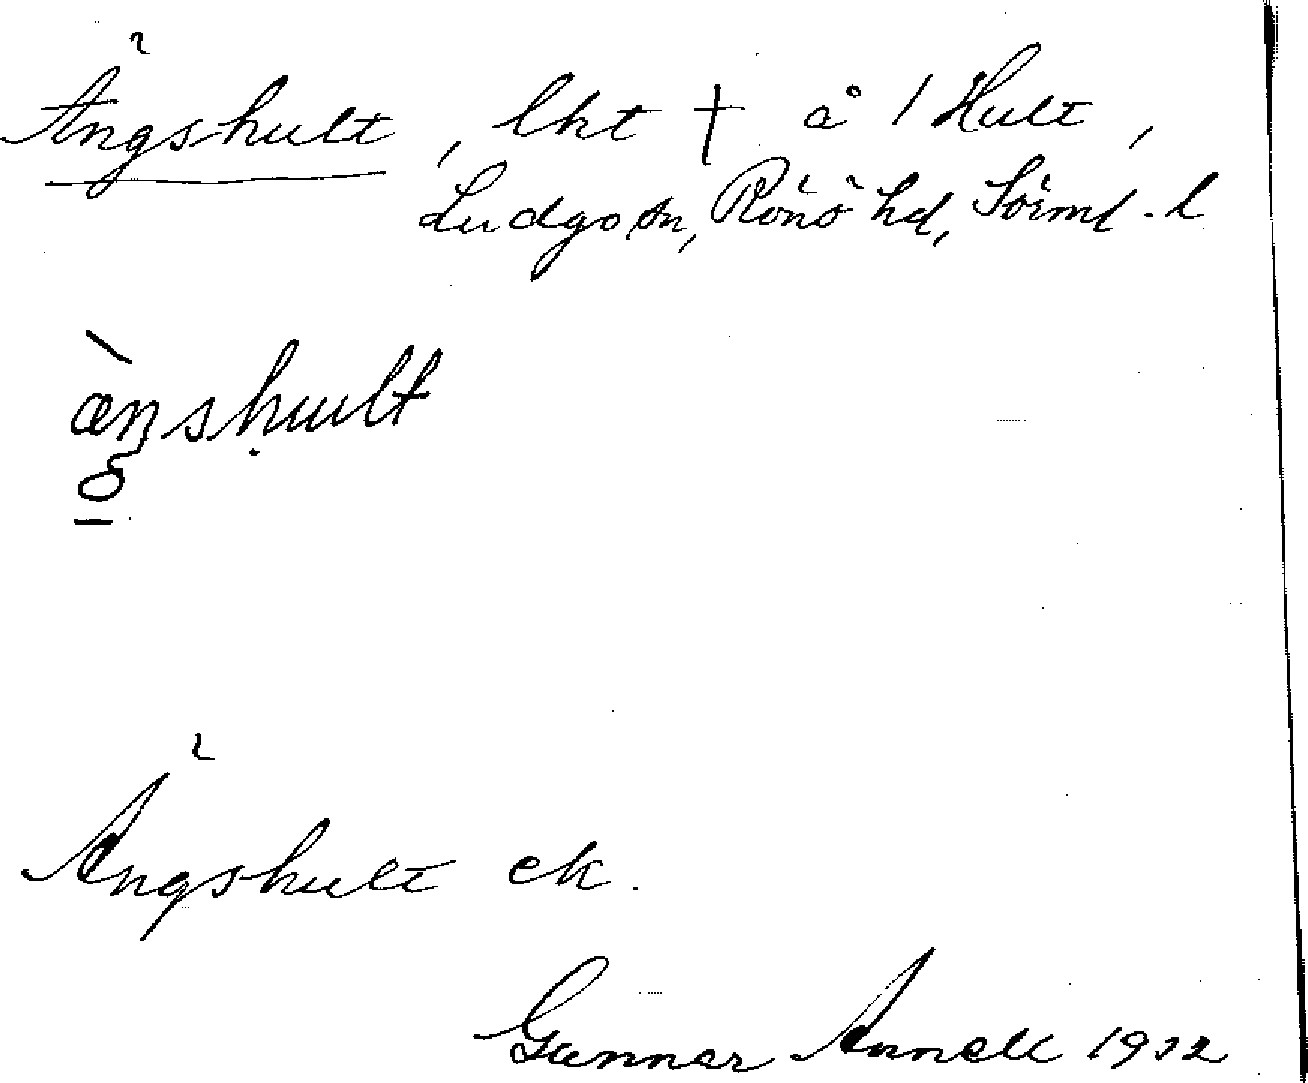 Ängshult, lht † å 1 Hult,
Ludgo sn, Rönö hd, Söiml. l
Ängshult ek.
Gunnar Annell 1932